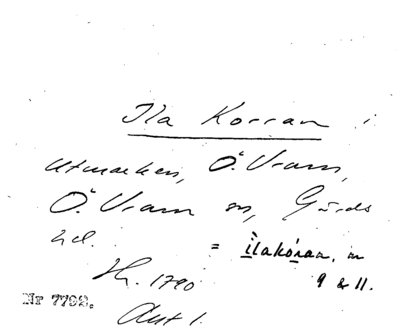 Ila Korran i
utmarken, Ö. Vram,
Ö. Vram sn, Gärds
hd. = ìlakóran, m
Hr. 1790 9 & 11.
Nr 7792. Avt 1.